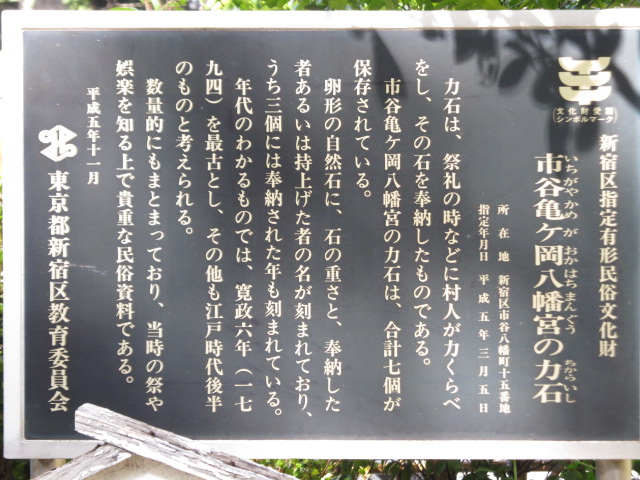 文化財愛護
シンボルマーク
新宿区指定有形民俗文化財
いちがやかめ が おかはちまんぐう ちからいし
市谷亀ヶ岡八幡宮の力石
所在地 新宿区市谷八幡町十五番地
指定年月日 平成五年三月五日
力石は、祭礼の時などに村人が力くらべ
をし、その石を奉納したものである。
市谷亀ヶ岡八幡宮の力石は、合計七個が
保存されている。
卵形の自然石に、石の重さと、奉納した
者あるいは持上げた者の名が刻まれており、
うち三個には奉納された年も刻まれている。
年代のわかるものでは、寛政六年（一七
九四）を最古とし、その他も江戸時代後半
のものと考えられる。
数量的にもまとまっており、当時の祭や
娯楽を知る上で貴重な民俗資料である。
平成五年十一月
東京都新宿区教育委員会